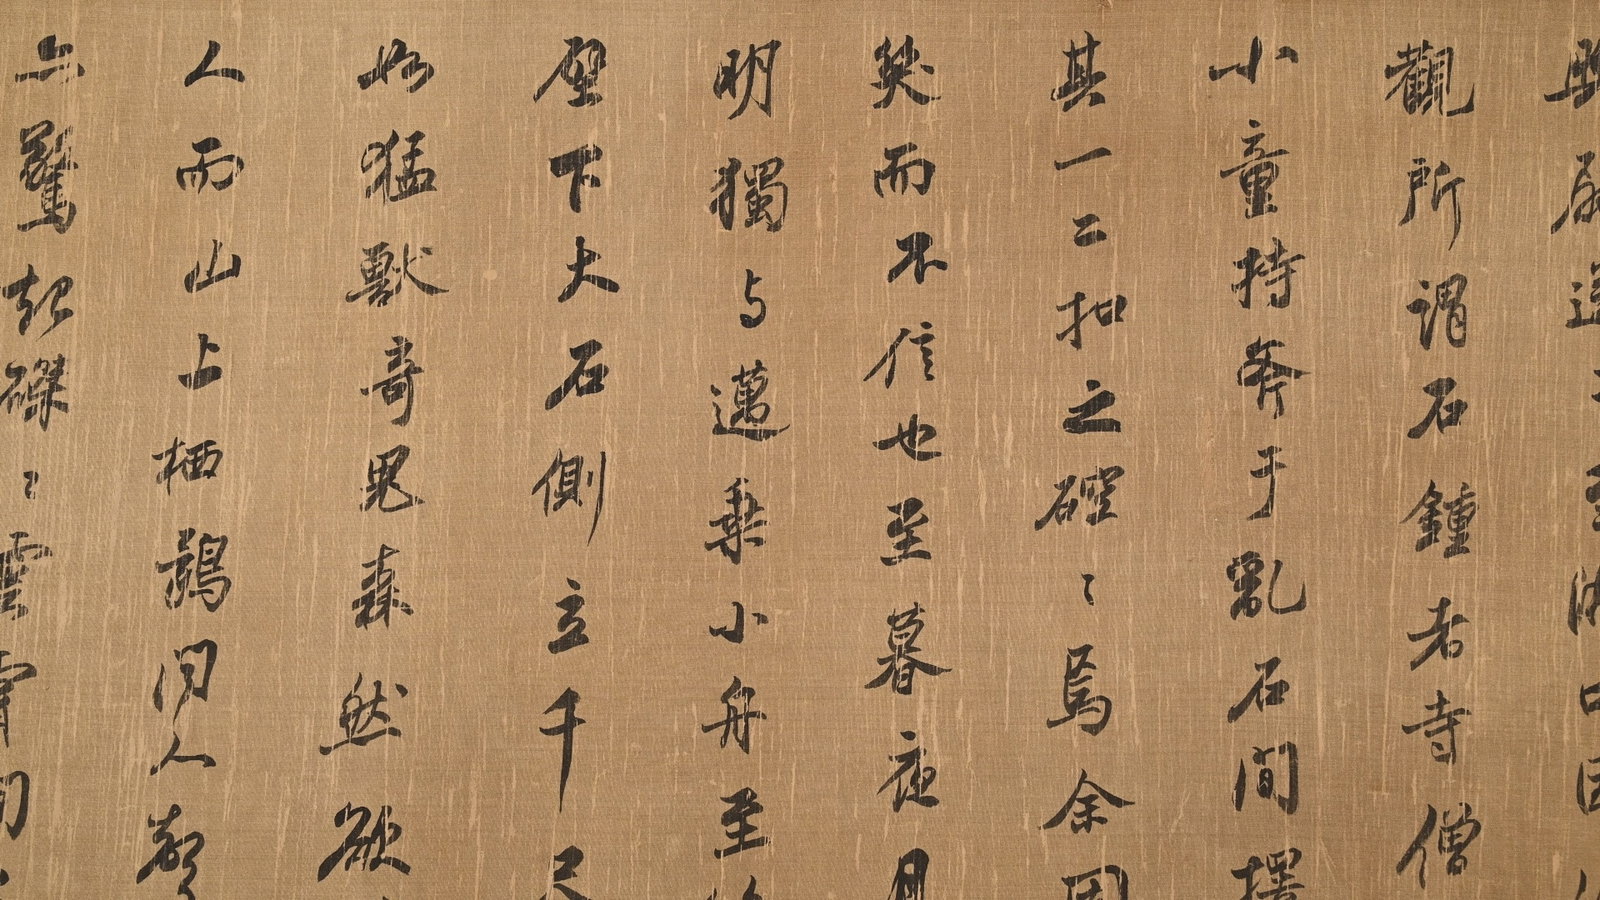 興尉送之至湖口因
觀所謂石鍾者寺僧
小童持斧于亂石間擇
其一二扣之硿〻焉余固
笑而不信也至暮夜月
明獨与邁乗小舟至
壁下大石側立千尺
如猛獸奇鬼森然欲
人而山上栖鶻聞人聲
亦驚起磔〻雲霄間